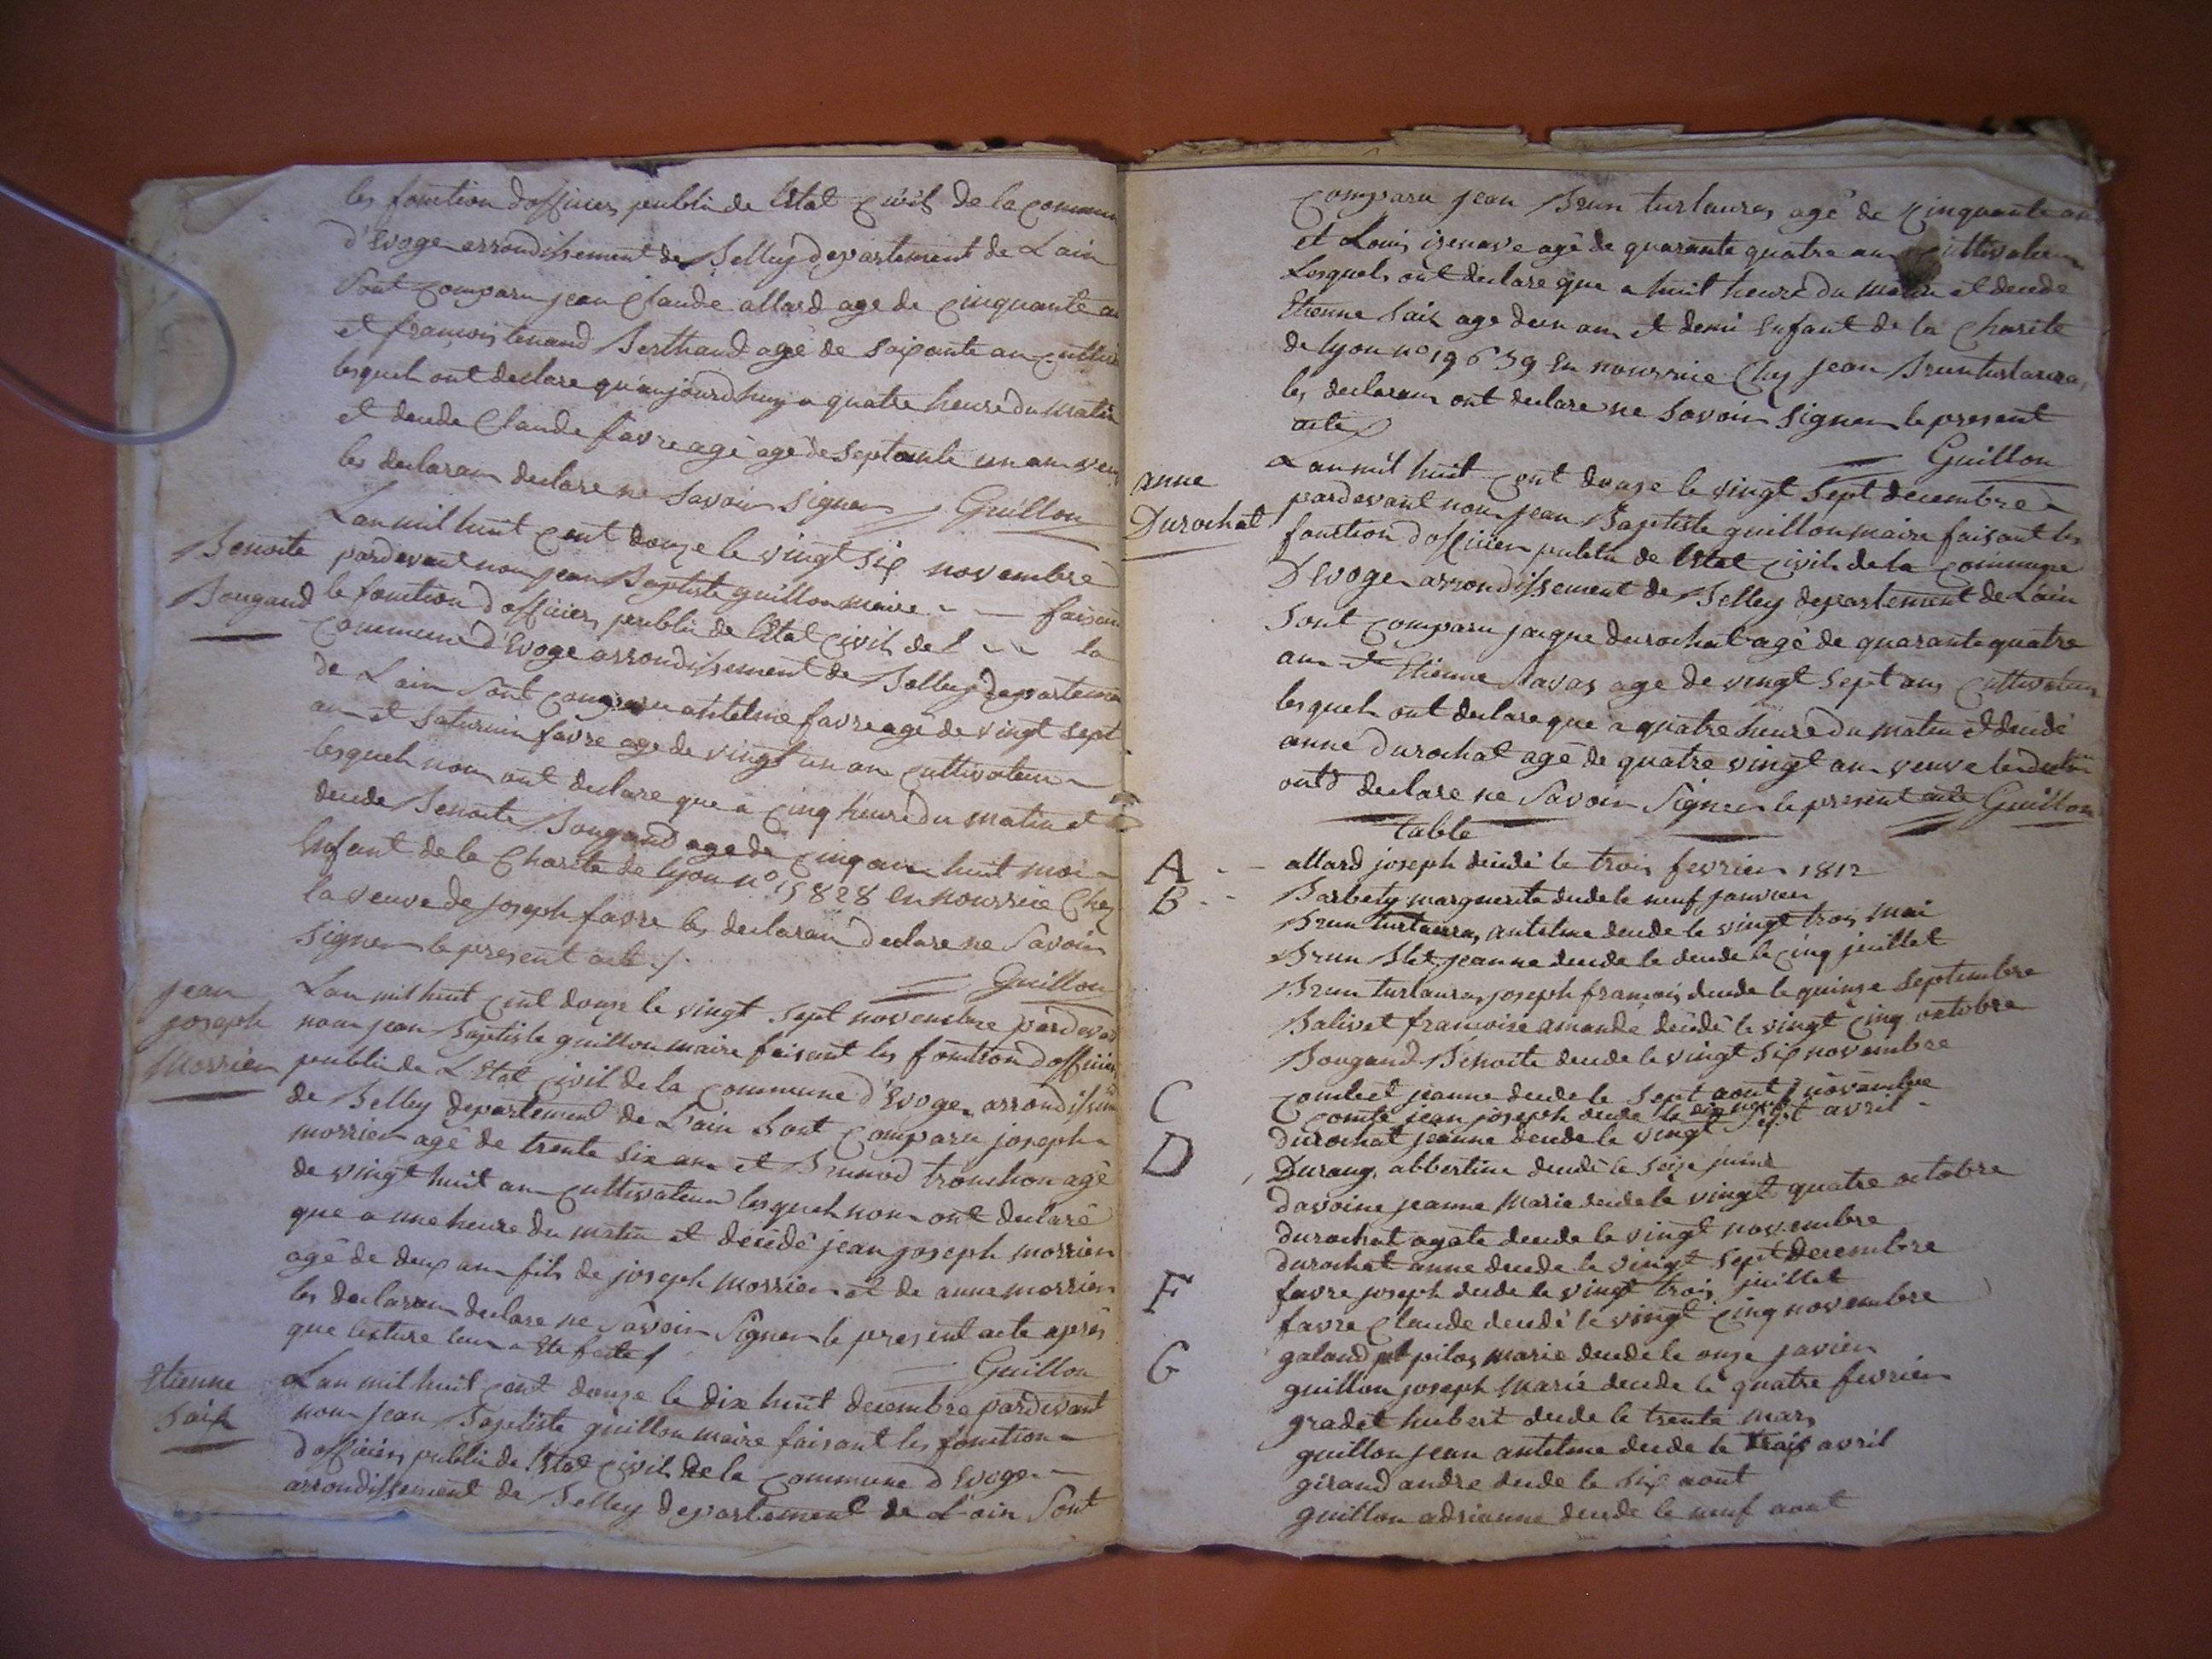 les fonction dofficier publin de lEtat Civil de la commun
d'Evoge arrondissement de Belley departement de Lain
Sont comparu jean Claude allard age de cinquante an
et francois tenand Berthand agé de soixante an cultiv
lesquel ont declare qu'aujourdhuy a quatre heure du matin
et decede Claude favre agé agé de septante un an veu
les declaran declare ne Savoir Signer Guillon
Benoite
Bougand
Lan mil huit cent douze le vingt Six novembre
pardevant nou jean Baptiste guillon maire - - faisan
le fonction d'officier publin de lEtat Civil de l - - la
commune d'Evoge arrondissement de Belley departemen
de Lain Sont comparu antelme favre agé de vingt sept
an et Saturnin favre age de vingt un an cultivateur
lesquel nou ont declare que a cinq heure du matin et
decede Benoite Bougand age de cinq an huit moi
Enfant de la Charite de lyon n° 15828 En nourrice Chez
la veuve de joseph favre les declaran declare ne Savoir
Signer le present acte ./.
Guillon
jean
joseph
Morrier
Lan mil huit cent douze le vingt Sept novembre pardevan
nou jean Baptiste guillon maire faisant les fonction d'officier
publin de LEtat Civil de la commune d'Evoge arrondissem
de Belley departement de L'ain Sont comparu joseph
morrier agé de trente six an et Brunod tronchon agé
de vingt huit an cultivateur lesquel nou ont declaré
que a une heure du matin et décédé jean joseph morrier
agé de deux an fils de joseph morrier et de anne morrier
les declaran declare ne Savoir Signer le present acte après
que lecture leur a Ete faite
Guillon
Etienne
Saix
Lan mil huit cent douze le dix huit decembre pardevant
nou jean Baptiste guillon maire faisant les fonction
d'officier publin de lEtat Civil de la commune d'Evoge
arrondissement de Belley departement de L'ain Sont
comparu jean Brun turlaura agé de cinquante an
et Louis isenave agé de quarante quatre an cultivateur
Lesquel ont declare que a huit heure du matin et decede
Etienne Saix age dun an et demi Enfant de la Charite
de lyon n° 19639 En nourrice Chez jean Brun turlaura
les declaran ont declare ne Savoir Signer le present
acte
Guillon
anne
Durochat
Lan mil huit cent douze le vingt Sept decembre
pardevant nou jean Baptiste guillon maire faisant les
fonction d'officier publin de lEtat Civil de la commune
D'Evoge arrondissement de Belley departement de Lain
Sont comparu jaque durochat agé de quarante quatre
an et Etienne Savas age de vingt Sept an cultivateur
lesquel ont declare que a quatre heure du matin et decedé
anne durochat agé de quatre vingt an veuve le
ont declare ne Savoir Signer le present acte Guillon
table
A - - allard joseph décédé le trois fevrier 1812
B - - Barbety marguerite decede le neuf janvier
Brun turlaura antelme decede le vingt trois mai
Brun jeanne decede le decede le cinq juillet
Brun turlaura joseph francois decede le quinze Septembre
Balivet francoise amande décédé le vingt cinq octobre
Bougand Benoite decede le vingt six novembre
C combet jeanne decede le Sept aout
comte jean joseph decede le novembre
D durochat jeanne decede le vingt Sept avril
Durang abbertine decedé le seize juine
davoine jeanne Marie decede le vingt quatre octobre
durochat agate decede le vingt novembre
durochat anne decede le vingt sept decembre
F favre joseph decede le vingt trois juillet
favre Claude decedé le vingt cinq novembre
G galand pilos marie decede le onze javier
guillon joseph Marie decede le quatre fevrier
gradet hubert decede le trente mars
guillon jean antelme decede le trois avril
girand andre decede le six aout
guillon adrianne decede le neuf aout